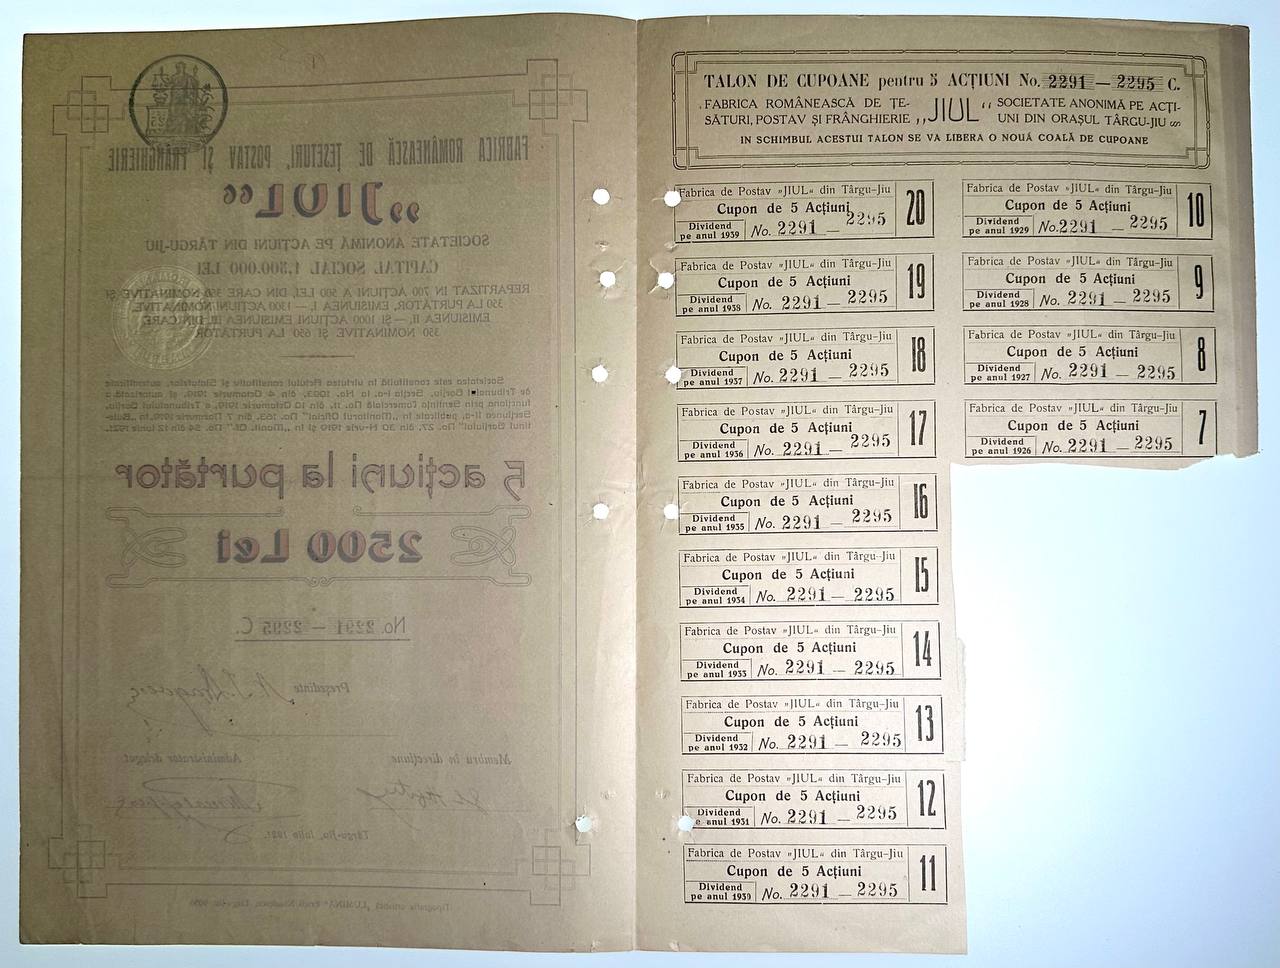 FABRICA ROMÂNEASCĂ DE ȚESETURI, POSTAV ȘI FRÂNGHIERIE
„JIUL“
SOCIETATE ANONIMĂ PE ACȚIUNI DIN TÂRGU-JIU
CAPITAL SOCIAL 1,500.000 LEI
REPARTIZAT IN 700 ACȚIUNI A 500 LEI, DIN CARE 350 NOMINATIVE ȘI
350 LA PURTĂTOR, EMISIUNEA I. — 1300 ACȚIUNI NOMINATIVE
EMISIUNEA II, — ȘI 1000 ACȚIUNI EMISIUNEA III, DIN CARE
350 NOMINATIVE ȘI 650 LA PURTĂTOR
Societatea este constituită în urma Actului constitutiv și Statutelor, autentificate
de Tribunalul Gorjiu, Secția I-a, la No. 1093, din 4 Octomvrie 1919, și autorizată a
funcționa prin Sentința Comercială No. 11, din 10 Octomvrie 1919, a Tribunalului Gorjiu,
Secțiunea II-a, publicată în „Monitorul Oficial“ No. 163, din 7 Noemvrie 1919, în
No. 27, din 30 N-vrie 1919 și în „Monit. Of.“ No. 54 din 12 Iunie 1921.
5 acțiuni la purtător
2500 Lei
No. 2291 — 2295 C.
Președinte
Membru în direcțiune
Administrator delegat
Târgu-Jiu, Iulie 1921.
TALON DE CUPOANE pentru 5 ACȚIUNI No. 2291 — 2295 C.
FABRICA ROMÂNEASCĂ DE ȚE-
SĂTURI, POSTAV ȘI FRÂNGHIERIE „JIUL“ SOCIETATE ANONIMĂ PE ACȚI-
UNI DIN ORAȘUL TÂRGU-JIU
IN SCHIMBUL ACESTUI TALON SE VA LIBERA O NOUĂ COALĂ DE CUPOANE
Fabrica de Postav »JIUL« din Târgu-Jiu
Cupon de 5 Acțiuni
Dividend
pe anul 1939 No. 2291 — 2295
20
Fabrica de Postav »JIUL« din Târgu-Jiu
Cupon de 5 Acțiuni
Dividend
pe anul 1938 No. 2291 — 2295
19
Fabrica de Postav »JIUL« din Târgu-Jiu
Cupon de 5 Acțiuni
Dividend
pe anul 1937 No. 2291 — 2295
18
Fabrica de Postav »JIUL« din Târgu-Jiu
Cupon de 5 Acțiuni
Dividend
pe anul 1936 No. 2291 — 2295
17
Fabrica de Postav »JIUL« din Târgu-Jiu
Cupon de 5 Acțiuni
Dividend
pe anul 1935 No. 2291 — 2295
16
Fabrica de Postav »JIUL« din Târgu-Jiu
Cupon de 5 Acțiuni
Dividend
pe anul 1934 No. 2291 — 2295
15
Fabrica de Postav »JIUL« din Târgu-Jiu
Cupon de 5 Acțiuni
Dividend
pe anul 1933 No. 2291 — 2295
14
Fabrica de Postav »JIUL« din Târgu-Jiu
Cupon de 5 Acțiuni
Dividend
pe anul 1932 No. 2291 — 2295
13
Fabrica de Postav »JIUL« din Târgu-Jiu
Cupon de 5 Acțiuni
Dividend
pe anul 1931 No. 2291 — 2295
12
Fabrica de Postav »JIUL« din Târgu-Jiu
Cupon de 5 Acțiuni
Dividend
pe anul 1930 No. 2291 — 2295
11
Fabrica de Postav »JIUL« din Târgu-Jiu
Cupon de 5 Acțiuni
Dividend
pe anul 1929 No. 2291 — 2295
10
Fabrica de Postav »JIUL« din Târgu-Jiu
Cupon de 5 Acțiuni
Dividend
pe anul 1928 No. 2291 — 2295
9
Fabrica de Postav »JIUL« din Târgu-Jiu
Cupon de 5 Acțiuni
Dividend
pe anul 1927 No. 2291 — 2295
8
Fabrica de Postav »JIUL« din Târgu-Jiu
Cupon de 5 Acțiuni
Dividend
pe anul 1926 No. 2291 — 2295
7